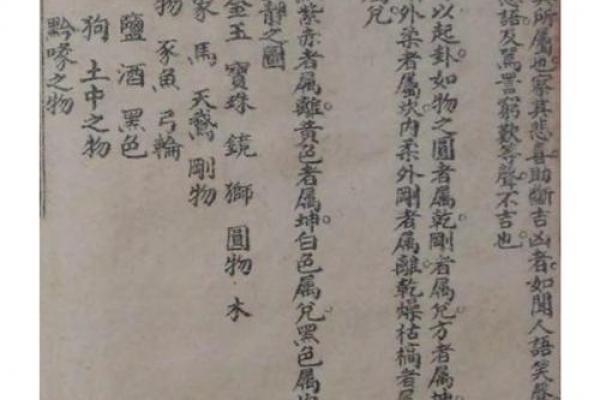 所屬也察其悲喜助斷吉凶者如聞人語笑聲
語及罵詈窮歎等聲不吉也
以起卦如物之圓者属乾剛者属兌方者属坤
外柔者属坎内柔外剛者属離乾燥枯槁者属
属兌
紫赤者属離黄色者属坤白色属兌黑色属
静之圖
金玉 寶珠 鏡 獅 圓物 木
馬 天鵞 剛物
物 豕魚 弓輪
鹽 酒 黑色
狗 土中之物
黔喙之物